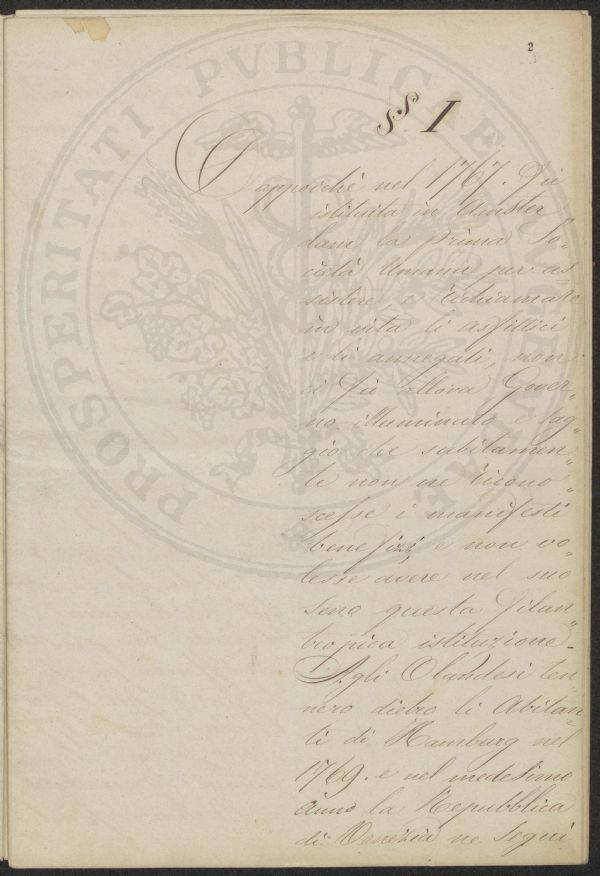 2
§§ I
Dappocchè nel 1767. Fù
istituita in Amster
dam la prima So„
cietà Umana per as„
sistere e richiamare
in vita li asfittici
e li annegati, non
ci fù allora Gover„
no illuminato e sag„
gio che subitamen„
te non ne ricono„
scesse i manifesti
benefizi, e non vo„
lesse avere nel suo
seno questa filan„
tropica istituzione.
Agli Olandesi ten„
nero dietro li Abitan„
ti di Hamburg nel
1769. e nel medesimo
anno la Repubblica
di Venezia ne seguì
PROSPERITATI PVBLICAE AVGENDAE